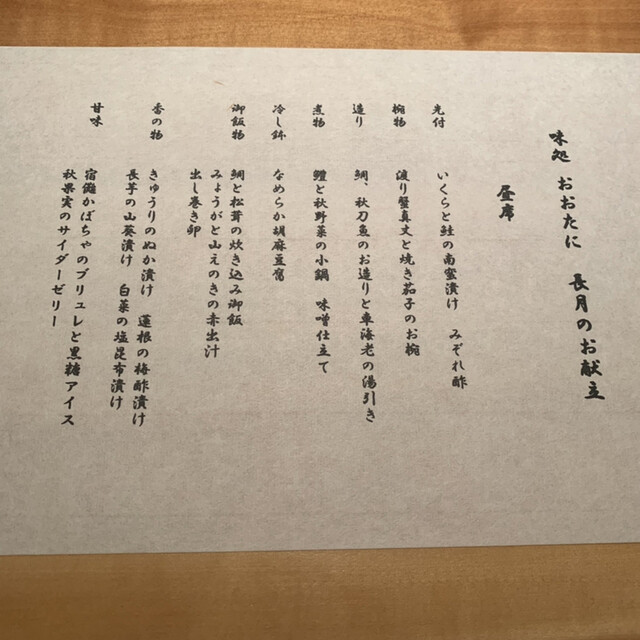 味処 おおたに 長月のお献立
昼席
先付 いくらと鮭の南蛮漬け みぞれ酢
椀物 渡り蟹真丈と焼き茄子のお椀
造り 鯛、秋刀魚のお造りと車海老の湯引き
煮物 鱧と秋野菜の小鍋 味噌仕立て
冷し鉢 なめらか胡麻豆腐
御飯物 鯛と松茸の炊き込み御飯
みょうがと山えのきの赤出汁
出し巻き卵
香の物 きゅうりのぬか漬け 蓮根の梅酢漬け
長芋の山葵漬け 白菜の塩昆布漬け
甘味 宿儺かぼちゃのブリュレと黒糖アイス
秋果実のサイダーゼリー